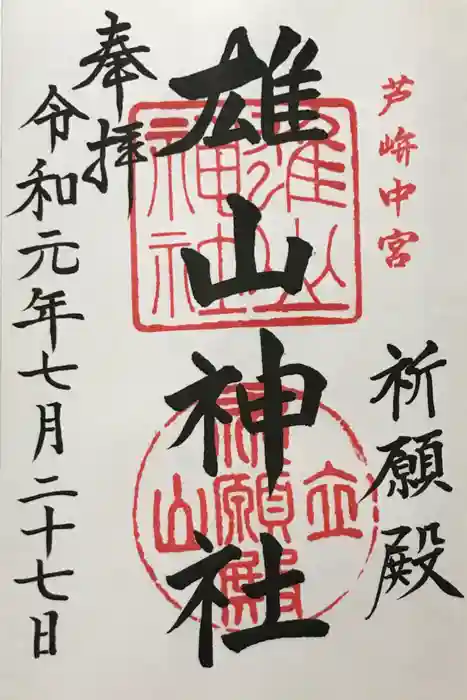 芦峅中宮
祈願殿
雄山神社
雄山神社
立山
祈願殿
奉拝
令和元年七月二十七日